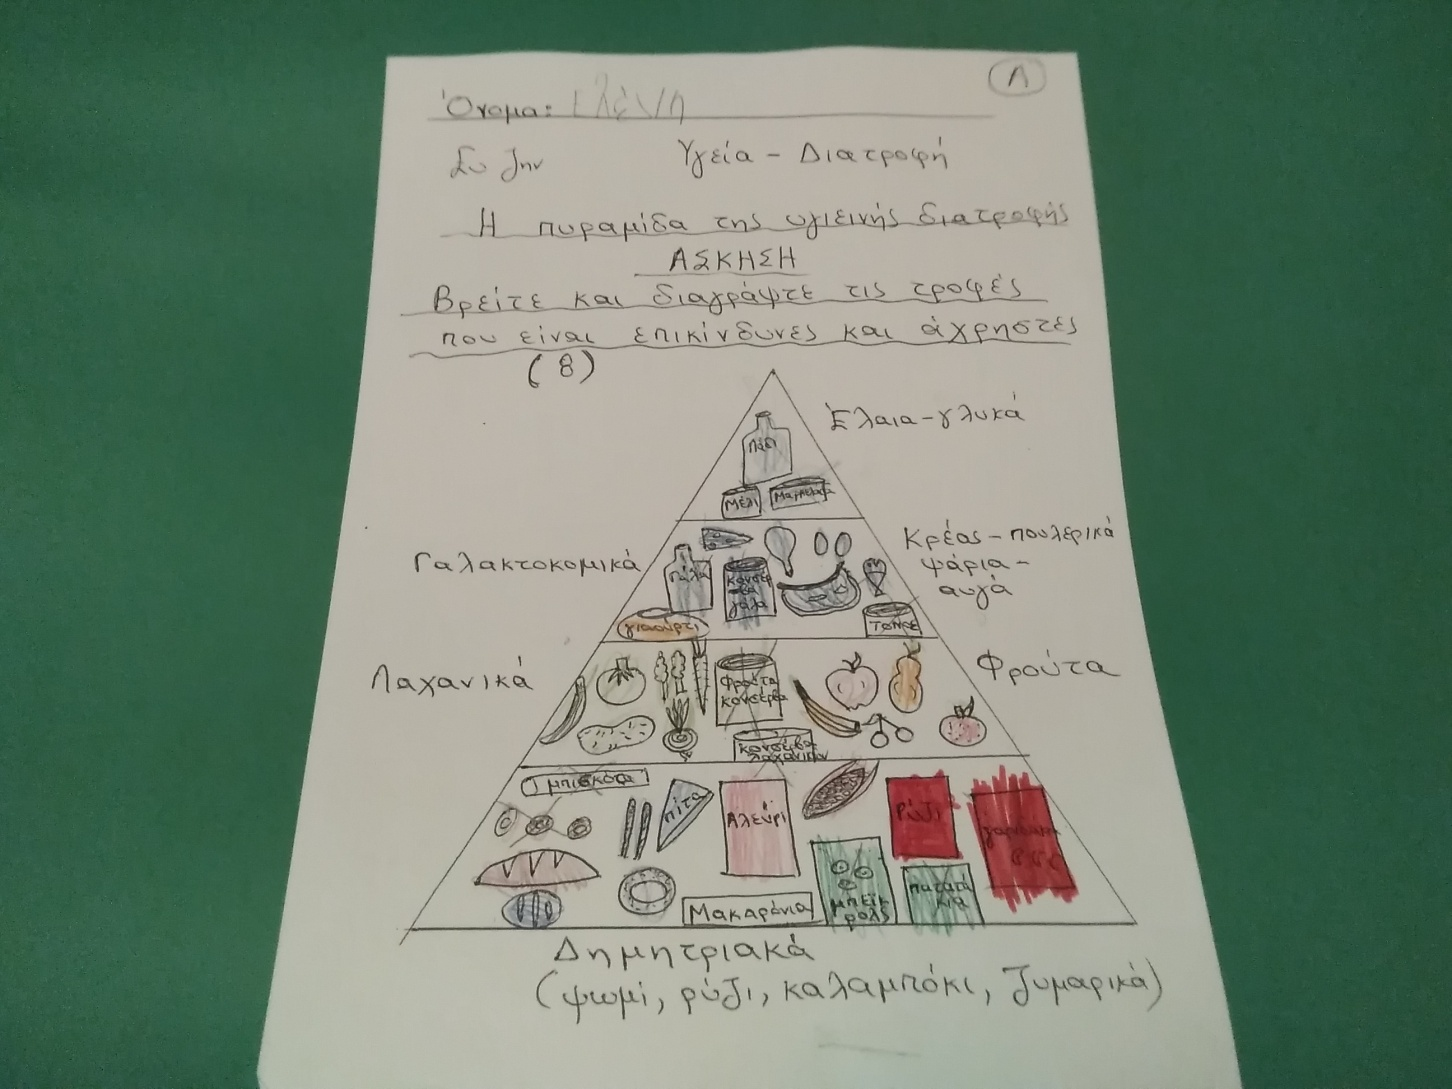 Λ
Όνομα: Ελένη
Ευ ζην Υγεία - Διατροφή
Η πυραμίδα της υγιεινής διατροφής
ΑΣΚΗΣΗ
Βρείτε και διαγράψτε τις τροφές
που είναι επικίνδυνες και άχρηστες
(8)
Έλαια-γλυκά
Λάδι
Μέλι Μαρμελάδα
Γαλακτοκομικά
Κρέας - πουλερικά
ψάρια -
αυγά
Γάλα
κονσέρ
βα
γάλα
γιαούρτι
τόνος
Λαχανικά
Φρούτα
Φρούτα
κονσέρβα
κονσέρβα
λαχανικών
μπισκότα
πίτα
Αλεύρι
Ρύζι
γαριδάκια
μπέικ
ρολς
πατατά
κια
Μακαρόνια
Δημητριακά
(ψωμί, ρύζι, καλαμπόκι, ζυμαρικά)